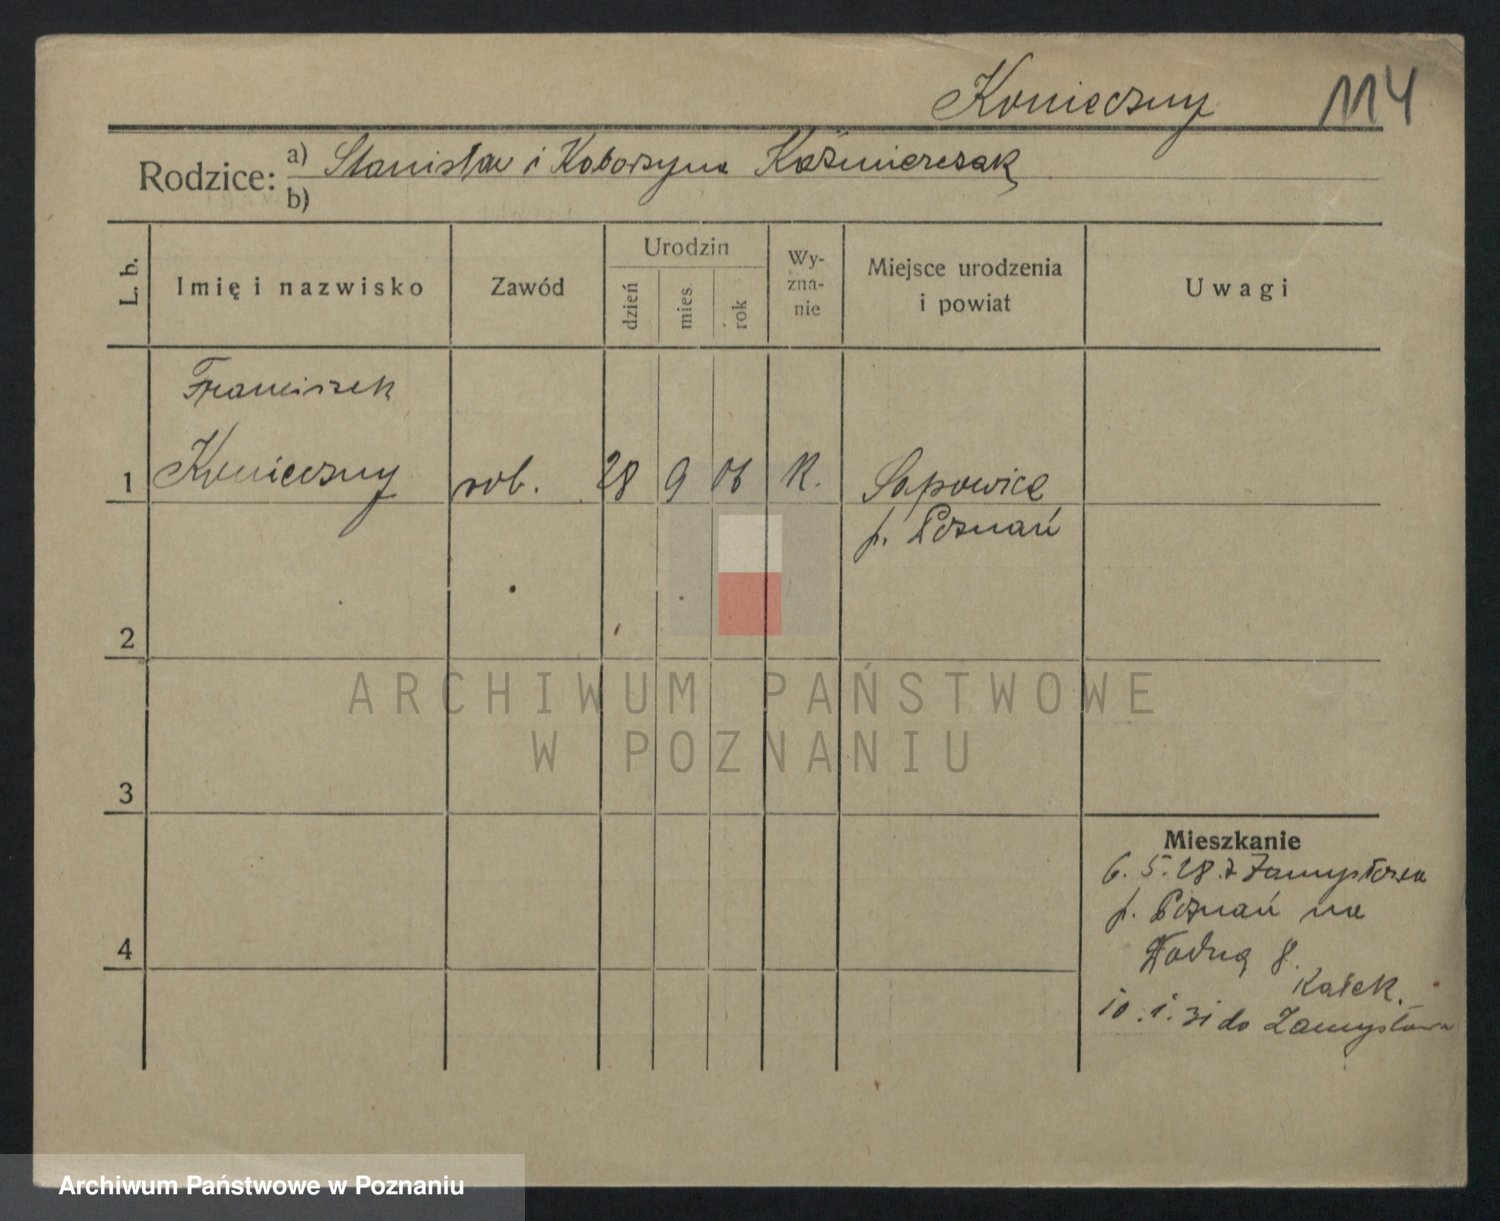 Konieczny 114
Rodzice: a) Stanisław i Katarzyna Kaźmierczak
b)
L. b. Imię i nazwisko Zawód Urodzin dzień mies. rok Wy-zna-nie Miejsce urodzenia i powiat Uwagi
Franciszek
1 Konieczny rob. 28 9 06 K. Sapowice
p. Poznań
2
ARCHIWUM PAŃSTWOWE
W POZNANIU
3
Mieszkanie
6. 5. 28. z
p. Poznań na
4 Wodną 8.
10. 1. 31 do
Archiwum Państwowe w Poznaniu